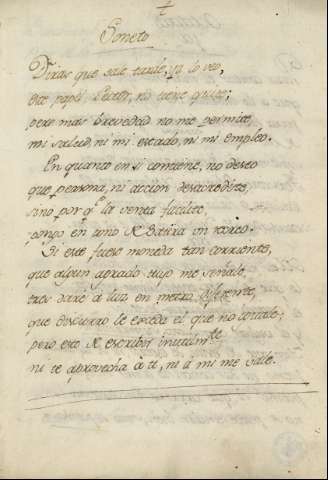 Soneto
Diras que sale tarde, ya lo veo,
este papel Lector, no tiene quite;
pero mas brevedad no me permite,
mi salud, ni mi estado, ni mi empleo.
En quanto en si contiene, no deseo
que persona, ni accion desacredite,
sino por q.e la venta facilite,
pongo en tono de satira un rodeo.
Si este fuese moneda tan corriente,
que algun agrado suyo me señale,
otro daré à luz en metro diferente,
que discurro le exceda el que no iguale;
pero esto es escribir inutilm.te
ni te aprovecha à ti, ni à mi me vale.